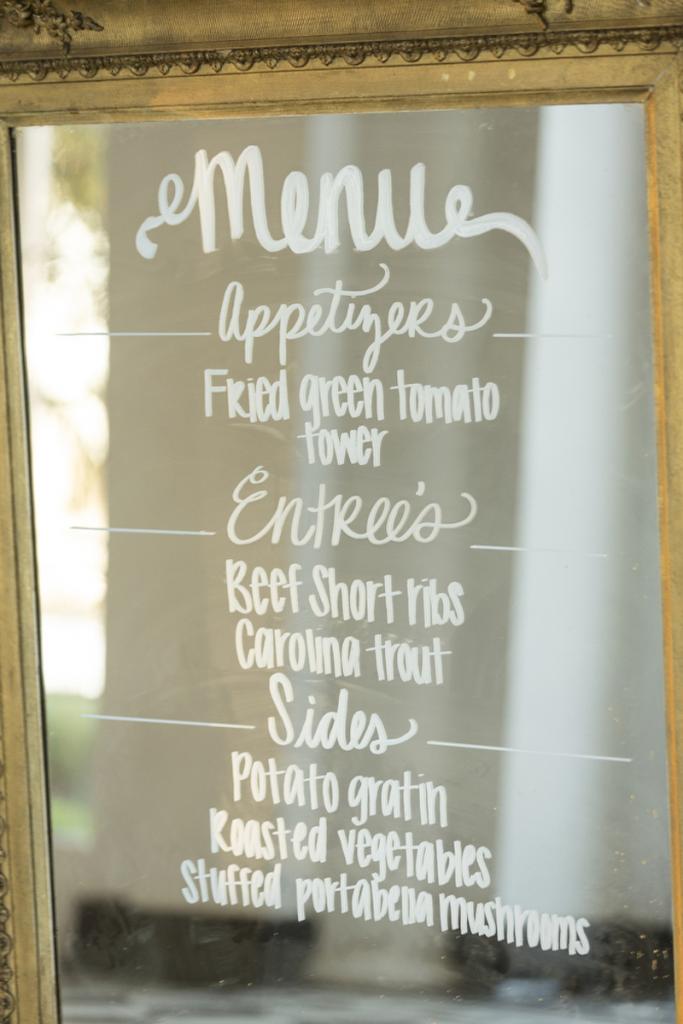 Menu
Appetizers
Fried green tomato
tower
Entree's
Beef Short ribs
Carolina trout
Sides
Potato gratin
Roasted vegetables
Stuffed portabella mushrooms